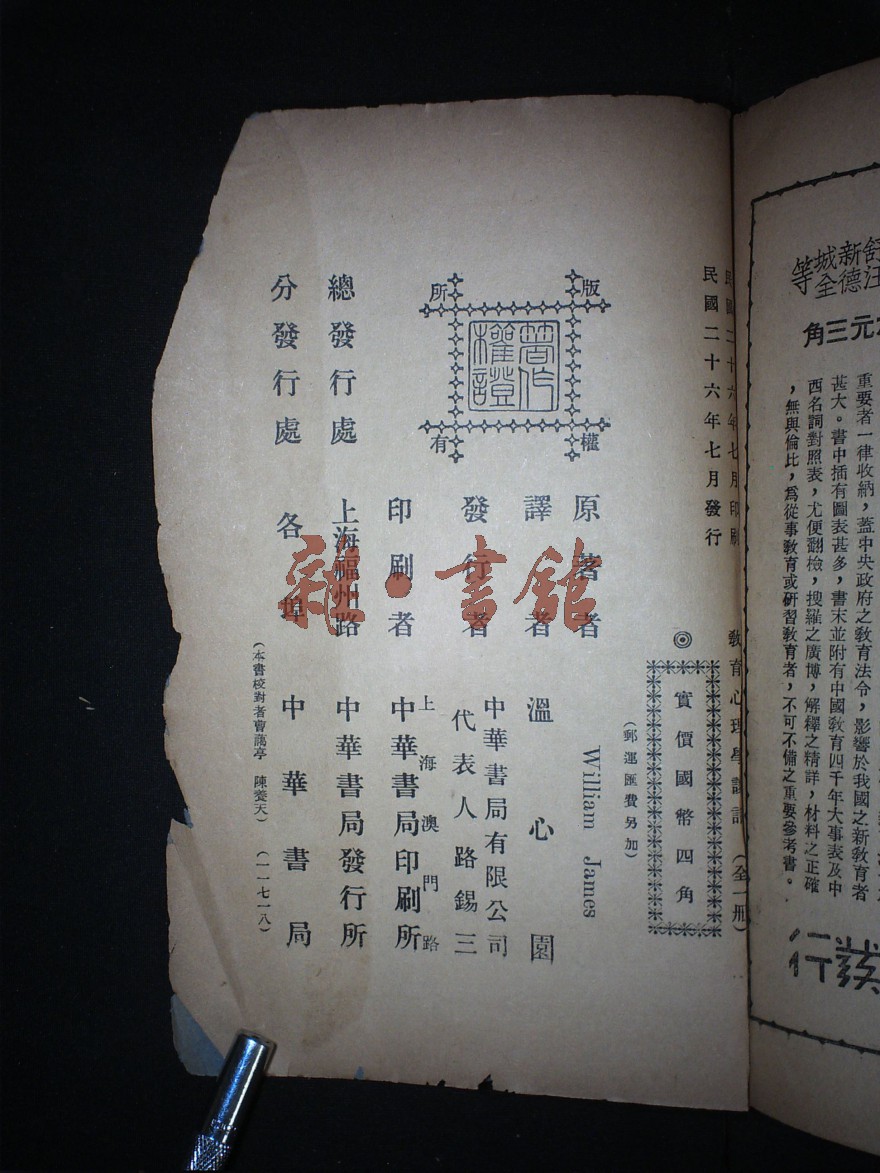 舒新城
汪德全
等
元三角
重要者一律收納，蓋中央政府之教育法令，影響於我國之新教育者
甚大。書中插有圖表甚多，書末並附有中國教育四千年大事表及中
西名詞對照表，尤便翻檢，搜羅之廣博，解釋之精詳，材料之正確
，無與倫比，為從事教育或研習教育者，不可不備之重要參考書。
發行
民國二十六年七月印刷
民國二十六年七月發行
教育心理學談話（全一冊）
◎
實價國幣四角
（郵運匯費另加）
版權所有
著作權證
原著者 William James
譯者 溫心園
發行者 中華書局有限公司
代表人路錫三
印刷者 上海澳門路
中華書局印刷所
總發行處 上海福州路 中華書局發行所
分發行處 各埠 中華書局
（本書校對者曹藹亭 陳養天）（一一七一八）
雜·書館